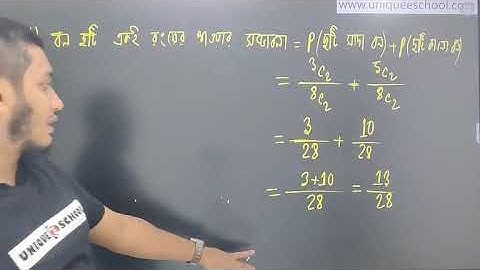 www.uniqueeschool.com
বল দুটি একই রংয়ের হওয়ার সম্ভাবনা = P(দুটি সাদা বল) + P(দুটি কালো বল)
= 3c₂/8c₂ + 5c₂/8c₂
= 3/28 + 10/28
= 3+10/28 = 13/28
UNIQUE SCHOOL